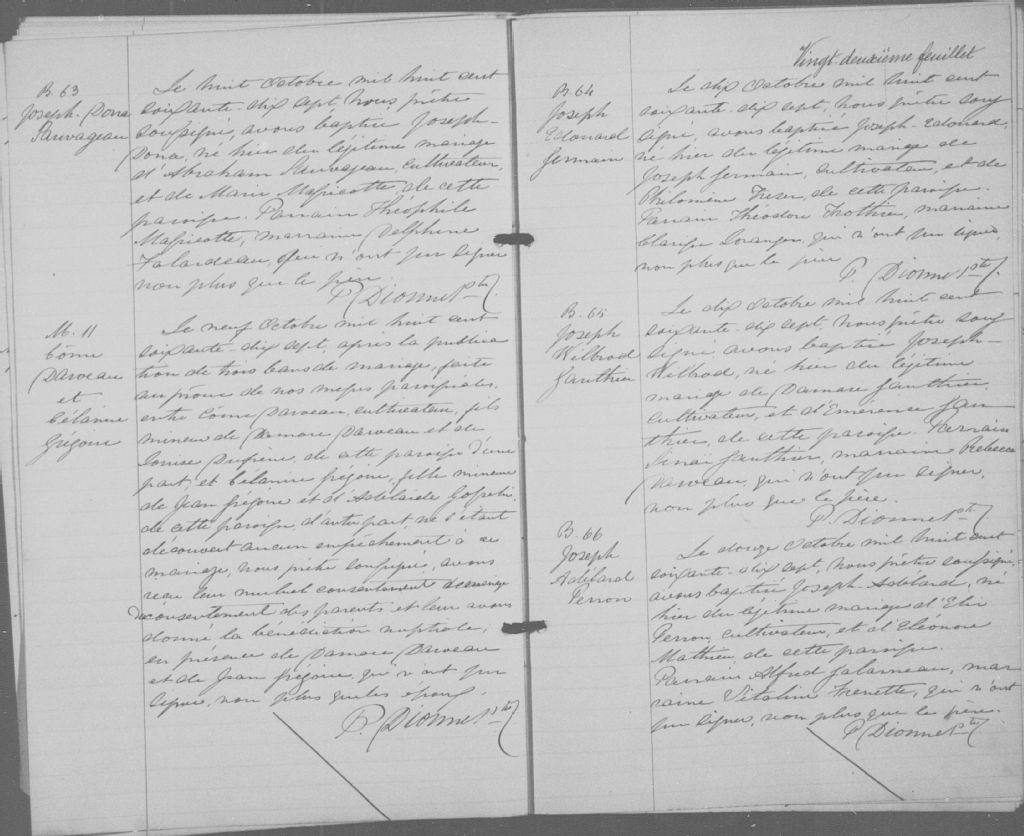 B. 63
Joseph-Dona
Sauvageau
Le huit Octobre mil huit cent
soixante-dix sept, nous prêtre
soussigné, avons baptisé Joseph-
Dona, né hier du légitime mariage
d'Abraham Sauvageau, cultivateur,
et de Marie Massicotte, de cette
paroisse. Parrain Théophile
Massicotte, marraine Delphine
Falardeau, qui n'ont pu signer
non plus que le père.
P. Dionne Ptre
M. 11
Côme
Darveau
et
Célanire
Grégoire
Le neuf Octobre mil huit cent
soixante-dix sept, après la publica
tion de trois bans de mariage, faite
au prône de nos messes paroissiales,
entre Côme Darveau, cultivateur, fils
mineur de Damase Darveau et de
Louise Dufresne, de cette paroisse d'une
part, et Célanire Grégoire, fille mineure
de Jean Grégoire et d'Adélaïde Gosselin
de cette paroisse, d'autre part ne s'étant
découvert aucun empêchement à ce
mariage, nous prêtre soussigné, avons
reçu leur mutuel consentement de mariage
du consentement des parents et leur avons
donné la bénédiction nuptiale,
en présence de Damase Darveau
et de Jean Grégoire, qui n'ont pu
signer, non plus que les époux.
P. Dionne Ptre
Vingt deuxième feuillet
B. 64
Joseph
Edouard
Germain
Le dix Octobre mil huit cent
soixante-dix sept, nous prêtre sous
signé, avons baptisé Joseph-Edouard,
né hier du légitime mariage de
Joseph Germain, cultivateur, et de
Philomène de cette paroisse.
Parrain Théodore Trottier, marraine
Clarisse Loranger, qui n'ont pu signer,
non plus que le père
P. Dionne Ptre
B. 65
Joseph
Wilbrod
Gauthier
Le dix Octobre mil huit cent
soixante-dix sept, nous prêtre sous
signé, avons baptisé Joseph-
Wilbrod, né hier du légitime
mariage de Damase Gauthier,
cultivateur, et d'Emérence Gau
thier, de cette paroisse. Parrain
Sinaï Gauthier, marraine Rebecca
Darveau, qui n'ont pu signer,
non plus que le père.
P. Dionne Ptre
B. 66
Joseph
Adélard
Perron
Le douze Octobre mil huit cent
soixante-dix sept, nous prêtre soussigné,
avons baptisé Joseph-Adélard, né
hier du légitime mariage d'Elie
Perron, cultivateur, et d'Eléonore
Mathieu de cette paroisse.
Parrain Alfred Galarneau, mar
raine Vitaline Frenette, qui n'ont
pu signer, non plus que le père.
P. Dionne Ptre